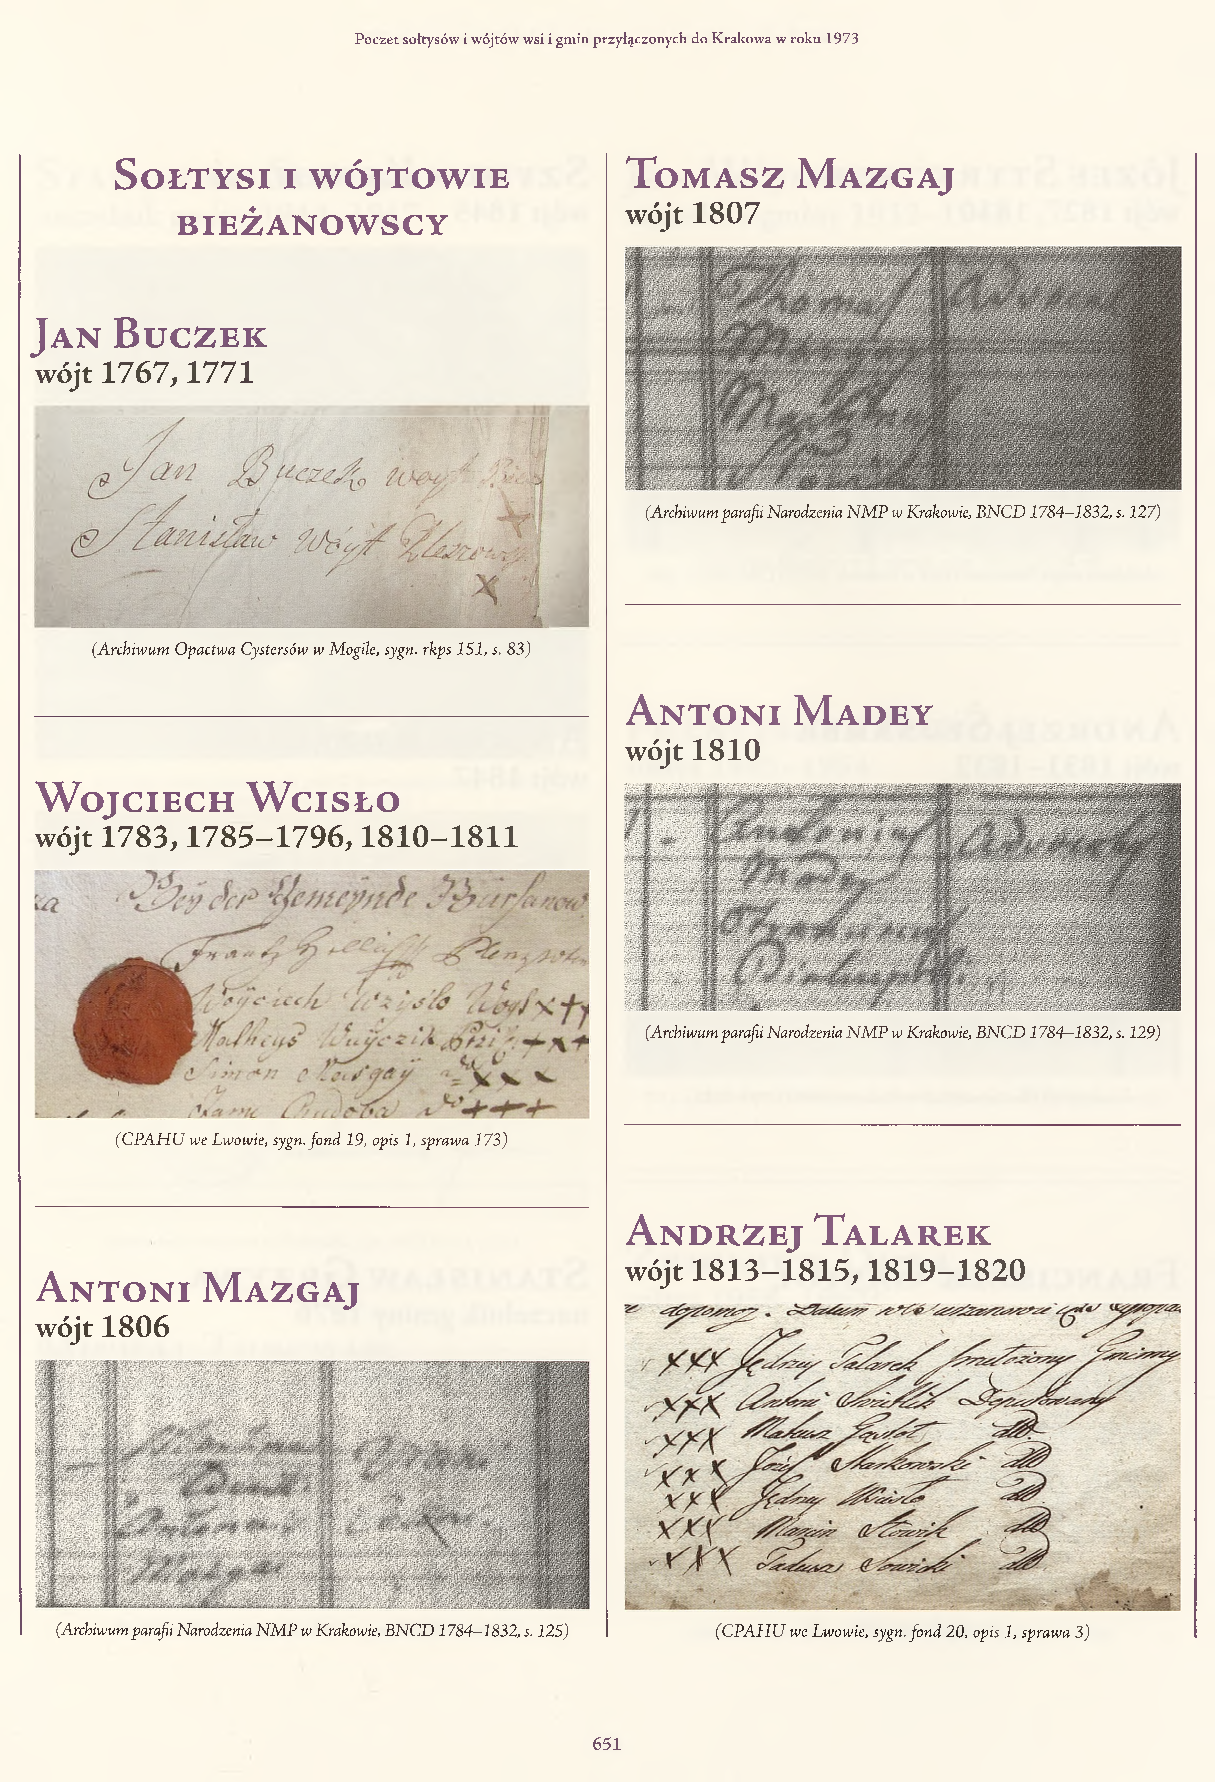 Poczet sołtysów i wójtów wsi i gmin przyłączonych do Krakowa w roku 1973
Sołtysi i wójtowie
bieżanowscy
Jan Buczek
wójt 1767, 1771
Jan Buczek woyt
Stanisław Wóyt
x
(Archiwum Opactwa Cystersów w Mogile, sygn. rkps 151, s. 83)
Wojciech Wcisło
wójt 1783, 1785–1796, 1810–1811
Bey der Gemeynde
Frantz
Woyciech Wzysło Woyt x++
Simon Masgay
(CPAHU we Lwowie, sygn. fond 19, opis 1, sprawa 173)
Antoni Mazgaj
wójt 1806
(Archiwum parafii Narodzenia NMP w Krakowie, BNCD 1784–1832, s. 125)
Tomasz Mazgaj
wójt 1807
Thomas
(Archiwum parafii Narodzenia NMP w Krakowie, BNCD 1784–1832, s. 127)
Antoni Madey
wójt 1810
Antonius
Madey
(Archiwum parafii Narodzenia NMP w Krakowie, BNCD 1784–1832, s. 129)
Andrzej Talarek
wójt 1813–1815, 1819–1820
xxx Jędrzey Talarek Gminny
xxx Antoni Deputowany
xxx Mateusz
xxx Józef Stankowski
xxx Jędrzey Wcisło
xxx Marcin Słowik
xxx Tadeusz Sowicki
(CPAHU we Lwowie, sygn. fond 20, opis 1, sprawa 3)
651